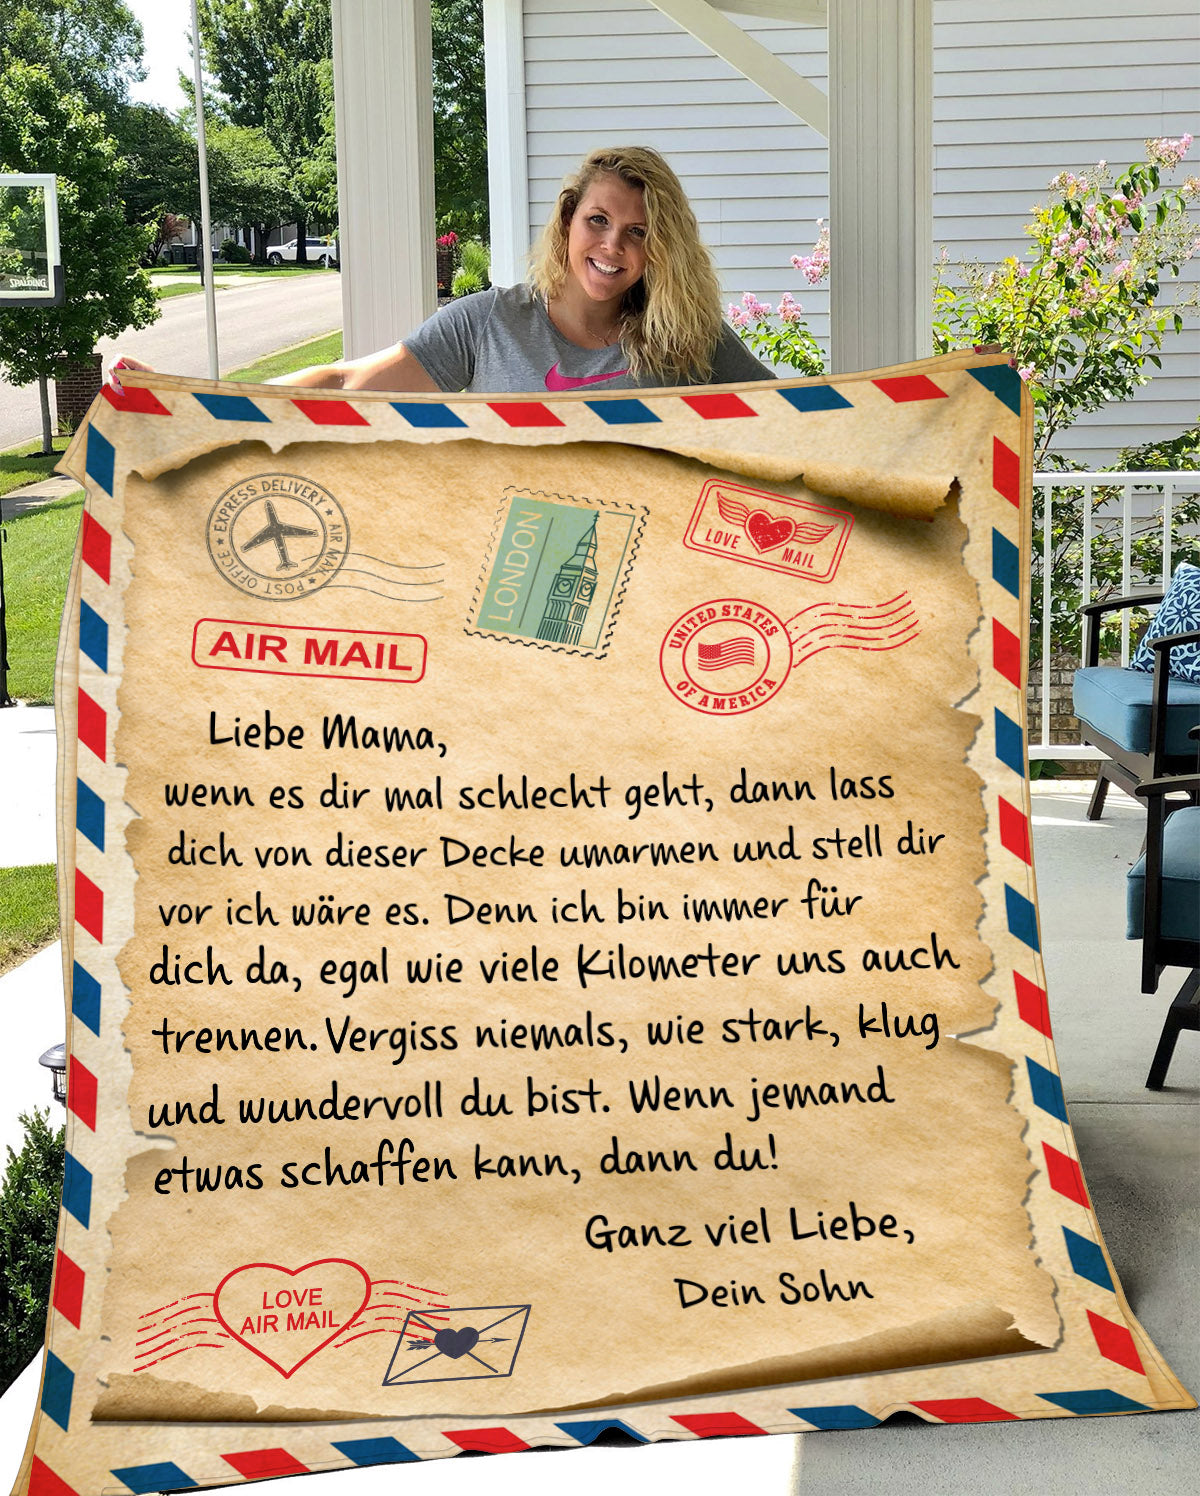 SPALDING
EXPRESS DELIVERY ★ AIR MAN ★ POST OFFICE ★
LONDON
LOVE MAIL
AIR MAIL
UNITED STATES
OF AMERICA
Liebe Mama,
wenn es dir mal schlecht geht, dann lass
dich von dieser Decke umarmen und stell dir
vor ich wäre es. Denn ich bin immer für
dich da, egal wie viele Kilometer uns auch
trennen. Vergiss niemals, wie stark, klug
und wundervoll du bist. Wenn jemand
etwas schaffen kann, dann du!
Ganz viel Liebe,
Dein Sohn
LOVE
AIR MAIL